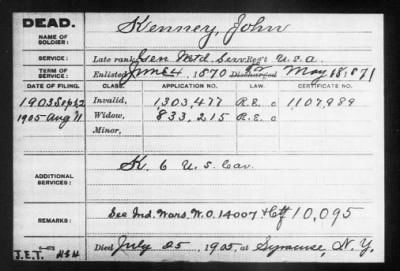 DEAD.
NAME OF SOLDIER:
Kenney, John
SERVICE:
Late rank, Gen Mtd. Serv. Regt U.S.A.
TERM OF SERVICE:
Enlisted June 4, 1870 Discharged May 18, 1871
DATE OF FILING. CLASS. APPLICATION NO. LAW. CERTIFICATE NO.
1903 Sept 2 Invalid, 1,303,477 R.E. c 1107,989
1905 Aug 11 Widow, 833,215 R.E. c
Minor,
ADDITIONAL SERVICES:
K. 6 U.S. Cav.
REMARKS:
See Ind. Wars. W.O. 14007 + Ctf 10,095
Died July 25, 1905, at Syracuse, N.Y.
J.E.T.